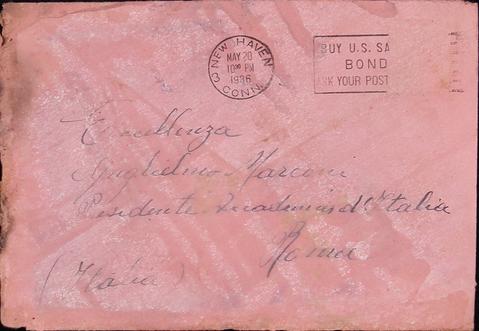 NEW HAVEN
MAY 20
1030 PM
1936
3 CONN.
BUY U.S. SA
BOND
ASK YOUR POST
Eccellenza
Guglielmo Marconi
Presidente Accademia d'Italia
Roma
(Italia)